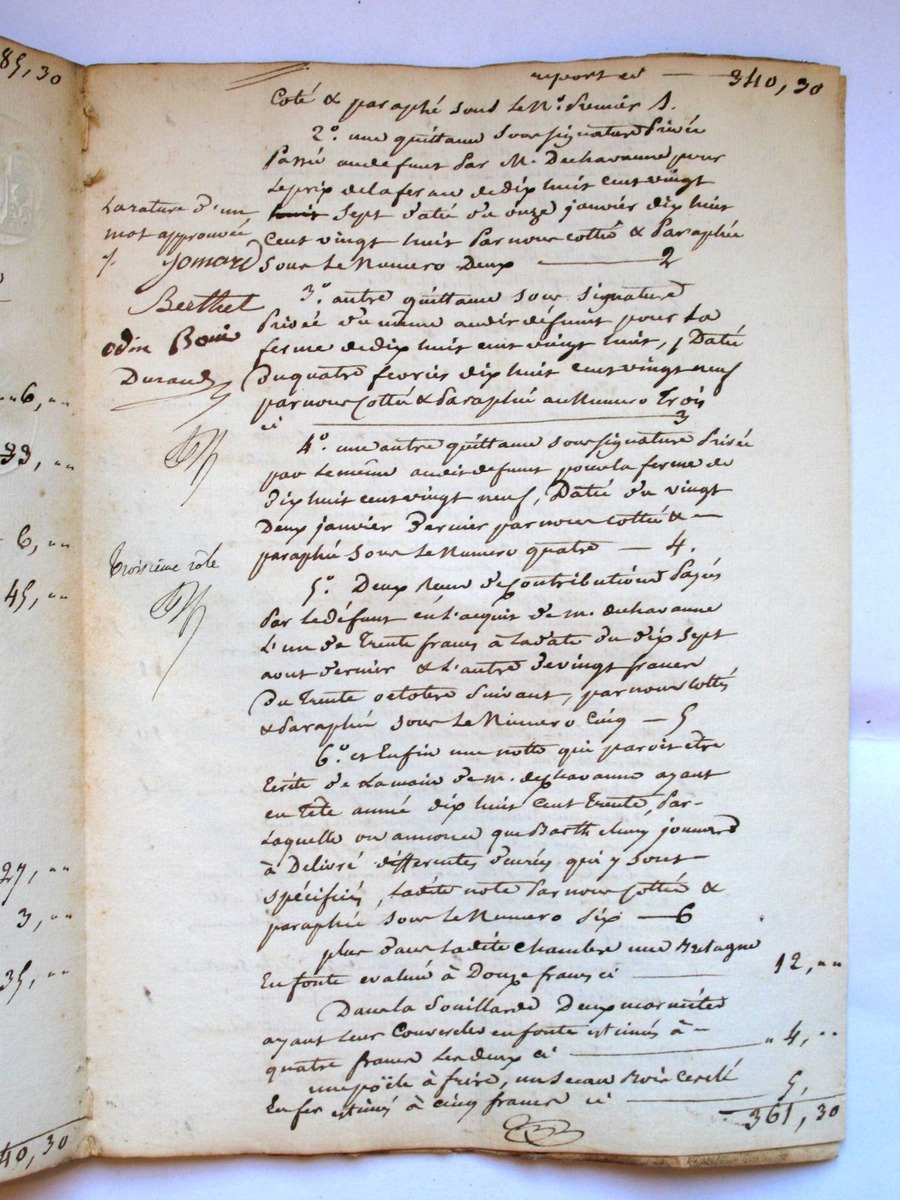 85,30
report ci — 340,30
Coté & paraphé sous le No. Premier 1.
2o. une quittance sous signature Privée
Passée au defunt Par M. Dechavanne pour
Le prix de la ferme de dix huit cent vingt
huit sept datée du onze janvier dix huit
Cent vingt huit Par nous cottée & Paraphée
sous le Numero Deux — 2
3o. autre quittance sous signature
Privée du même audit défunt pour La
ferme de dix huit cent vingt huit, Datée
Du quatre fevrier dix huit cent vingt neuf
par nous Cottée & Paraphée au Numero Trois
ci — 3
4o. une autre quittance sous signature Privée
par Le même audit defunt pour la ferme de
dix huit cent vingt neuf, Datée du vingt
Deux janvier dernier par nous cottée & —
paraphée sous Le Numero quatre — 4.
5o. Deux Recus de Contributions Payés
Par Le défunt en l'acquit de m. dechavanne
L'un de Trente francs à la date du dix sept
aout dernier & L'autre de vingt francs
Du Trente octobre Suivant, par nous cottés
& Paraphés sous Le Numero Cinq — 5
6o. et Enfin une notte qui paroit être
Ecrite de La main de m. dechavanne ayant
en Tête année dix huit cent Trente, Par-
Laquelle on annonce que Barthelemy jomard
à Delivré differentes denrées qui y sont
spécifiées, Ladite note Par nous Cottée &
paraphée sous Le Numero Six — 6
plus dans Ladite Chambre une Bretagne
En fonte evalué à Douze francs ci — 12,""
Dans la Souillarde Deux marmites
ayant Leur Couvercle en fonte estimés à —
quatre francs Les deux ci — "4,""
une poële à frire, un Seau Bois Cerclé
En fer estimés à cinq francs ci — 5,
361,30
La rature d'un
mot approuvée
Jomard
Berthet
odin Bonin
Durand
Troisième rôle
"6,""
33,""
6,""
45,""
27,""
3,""
35,""
40,30